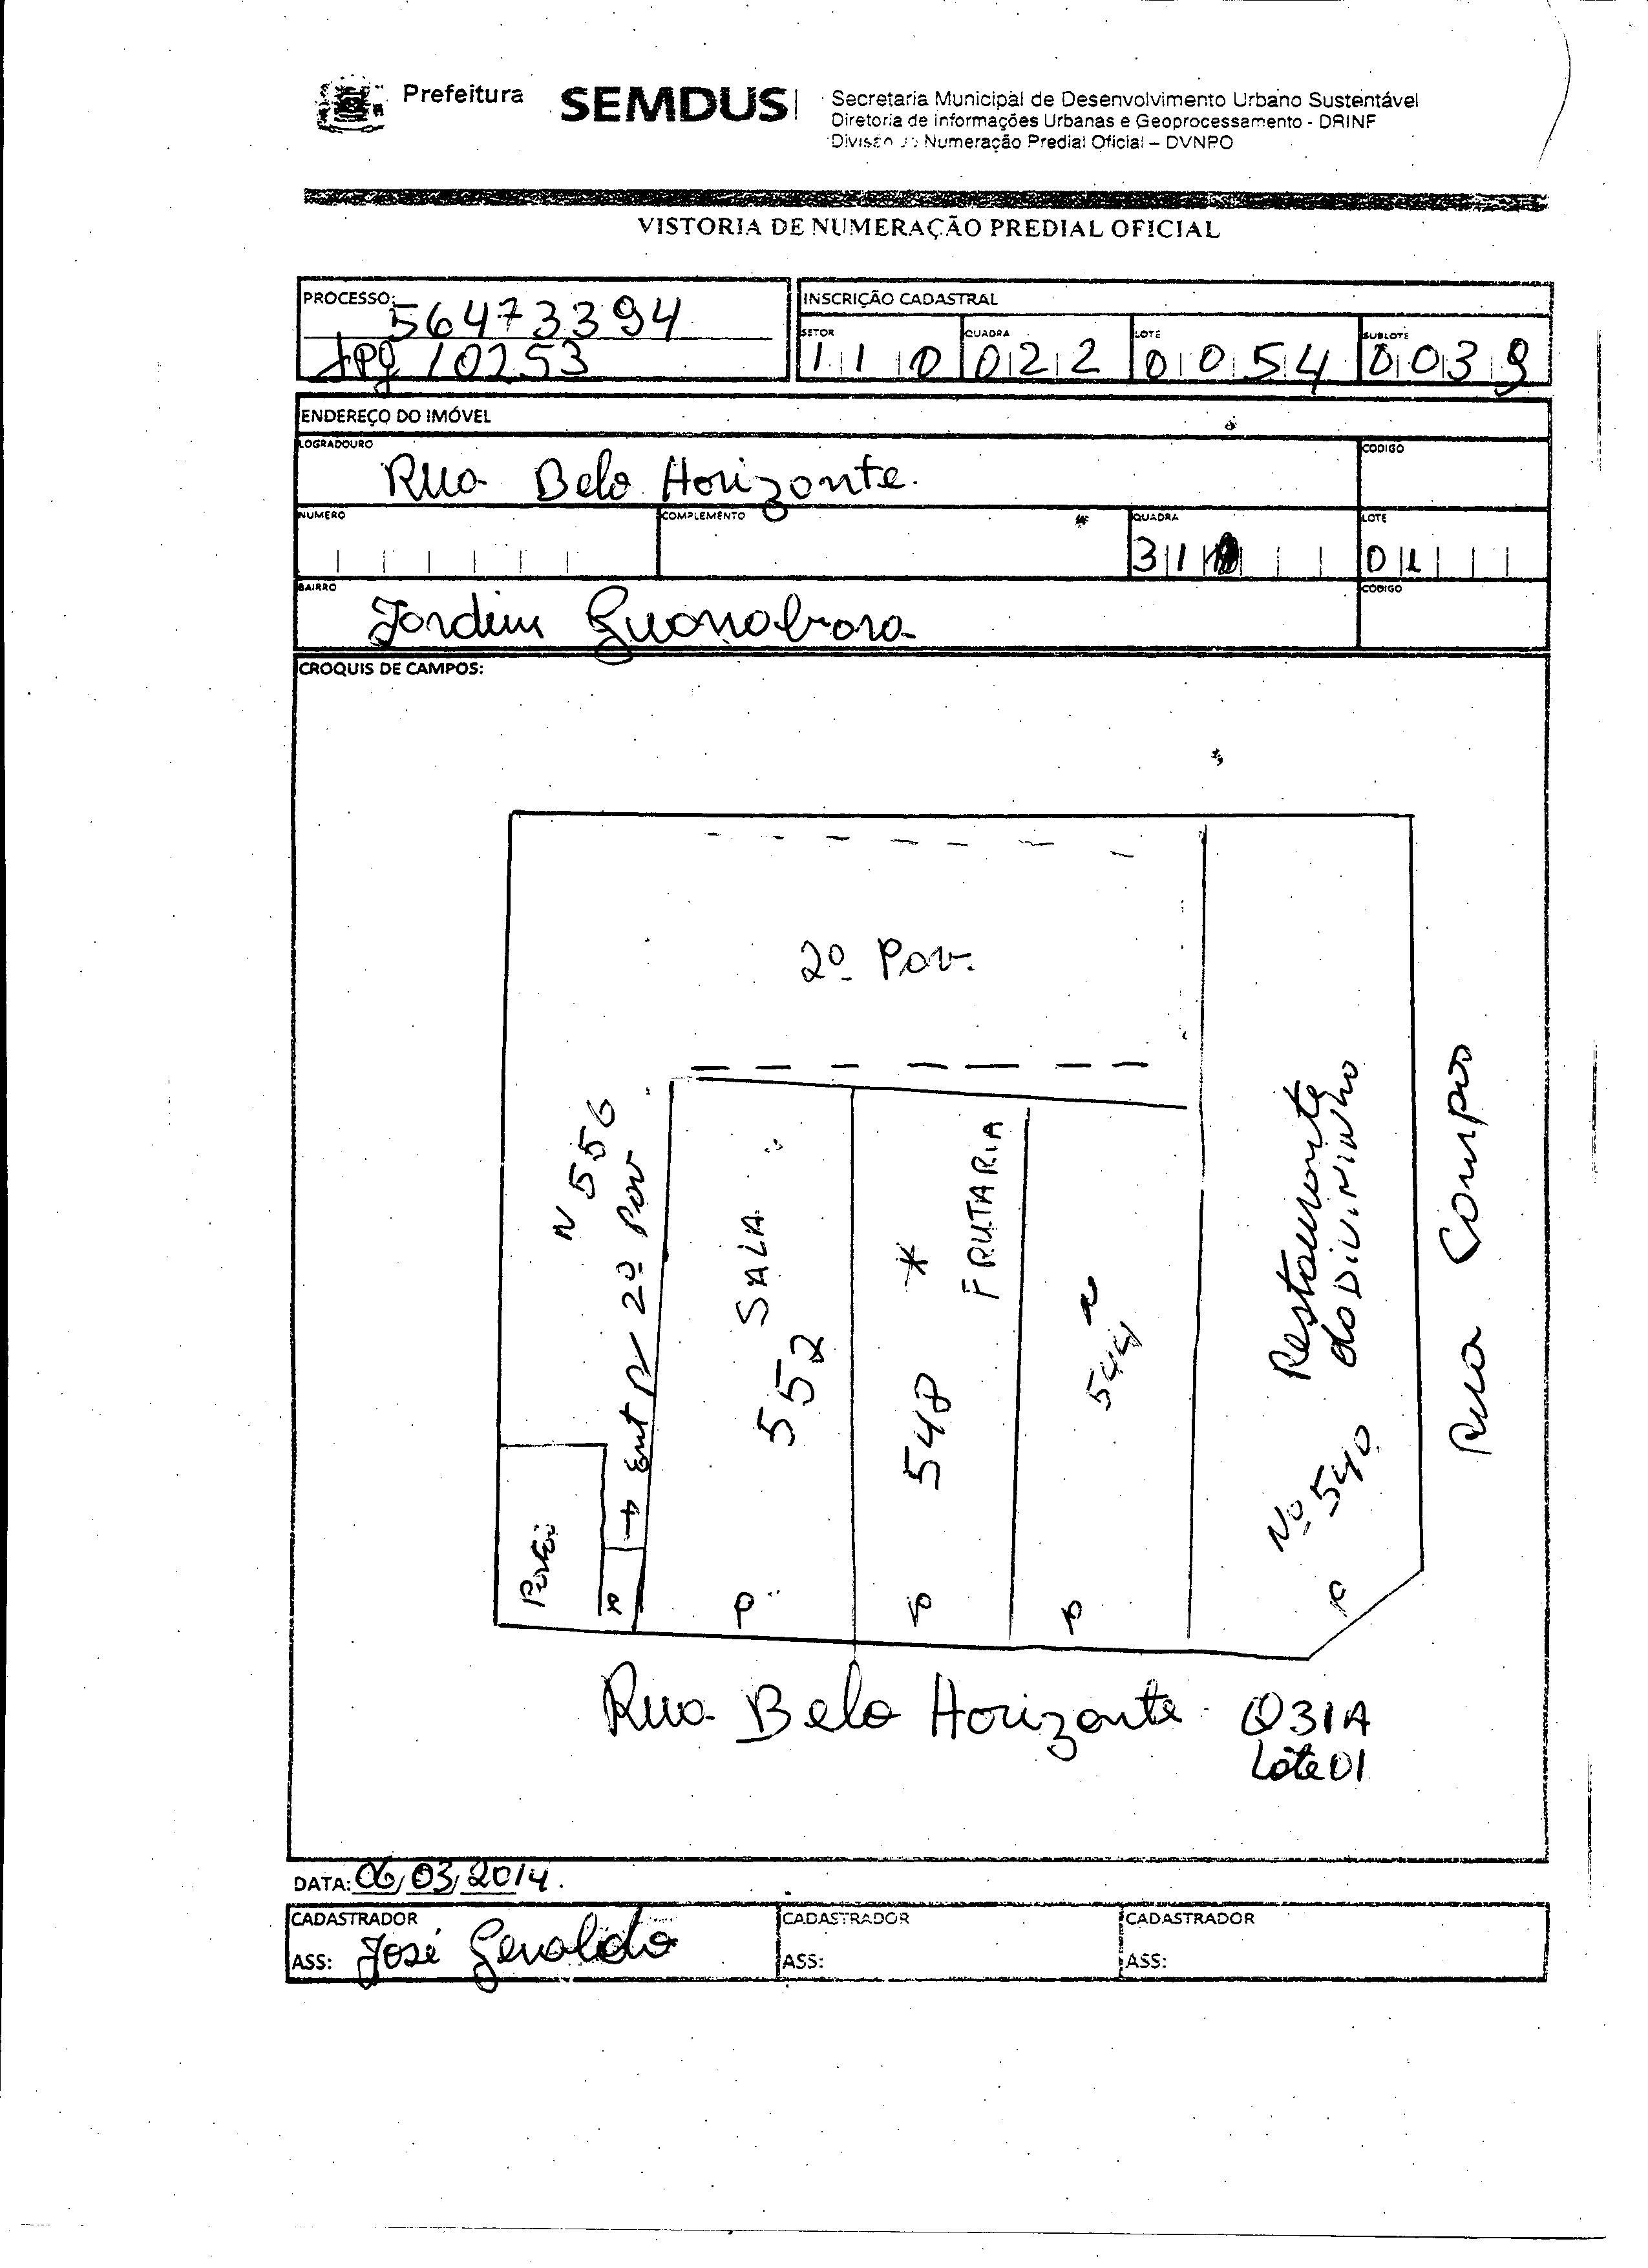 Prefeitura SEMDUS
Secretaria Municipal de Desenvolvimento Urbano Sustentável
Diretoria de Informações Urbanas e Geoprocessamento - DRINF
Divisão de Numeração Predial Oficial – DVNPO
VISTORIA DE NUMERAÇÃO PREDIAL OFICIAL
PROCESSO: 56473394
10253
INSCRIÇÃO CADASTRAL
SETOR QUADRA LOTE SUBLOTE
110 022 0054 0039
ENDEREÇO DO IMÓVEL
LOGRADOURO CODIGO
Rua Belo Horizonte.
NUMERO COMPLEMENTO QUADRA LOTE
31 01
BAIRRO CODIGO
Jardim Guanabara
CROQUIS DE CAMPOS:
2º Pav.
N 556
Ent P/ 2º Pav
SALA
552
548 *
FRUTARIA
544
Restaurante
do DIVININHO
Nº 540
Rua Campos
Portão
P
P
P
P
P
Rua Belo Horizonte Q31A
Lote 01
DATA: 06/03/2014.
CADASTRADOR CADASTRADOR CADASTRADOR
ASS: José Geraldo ASS: ASS: